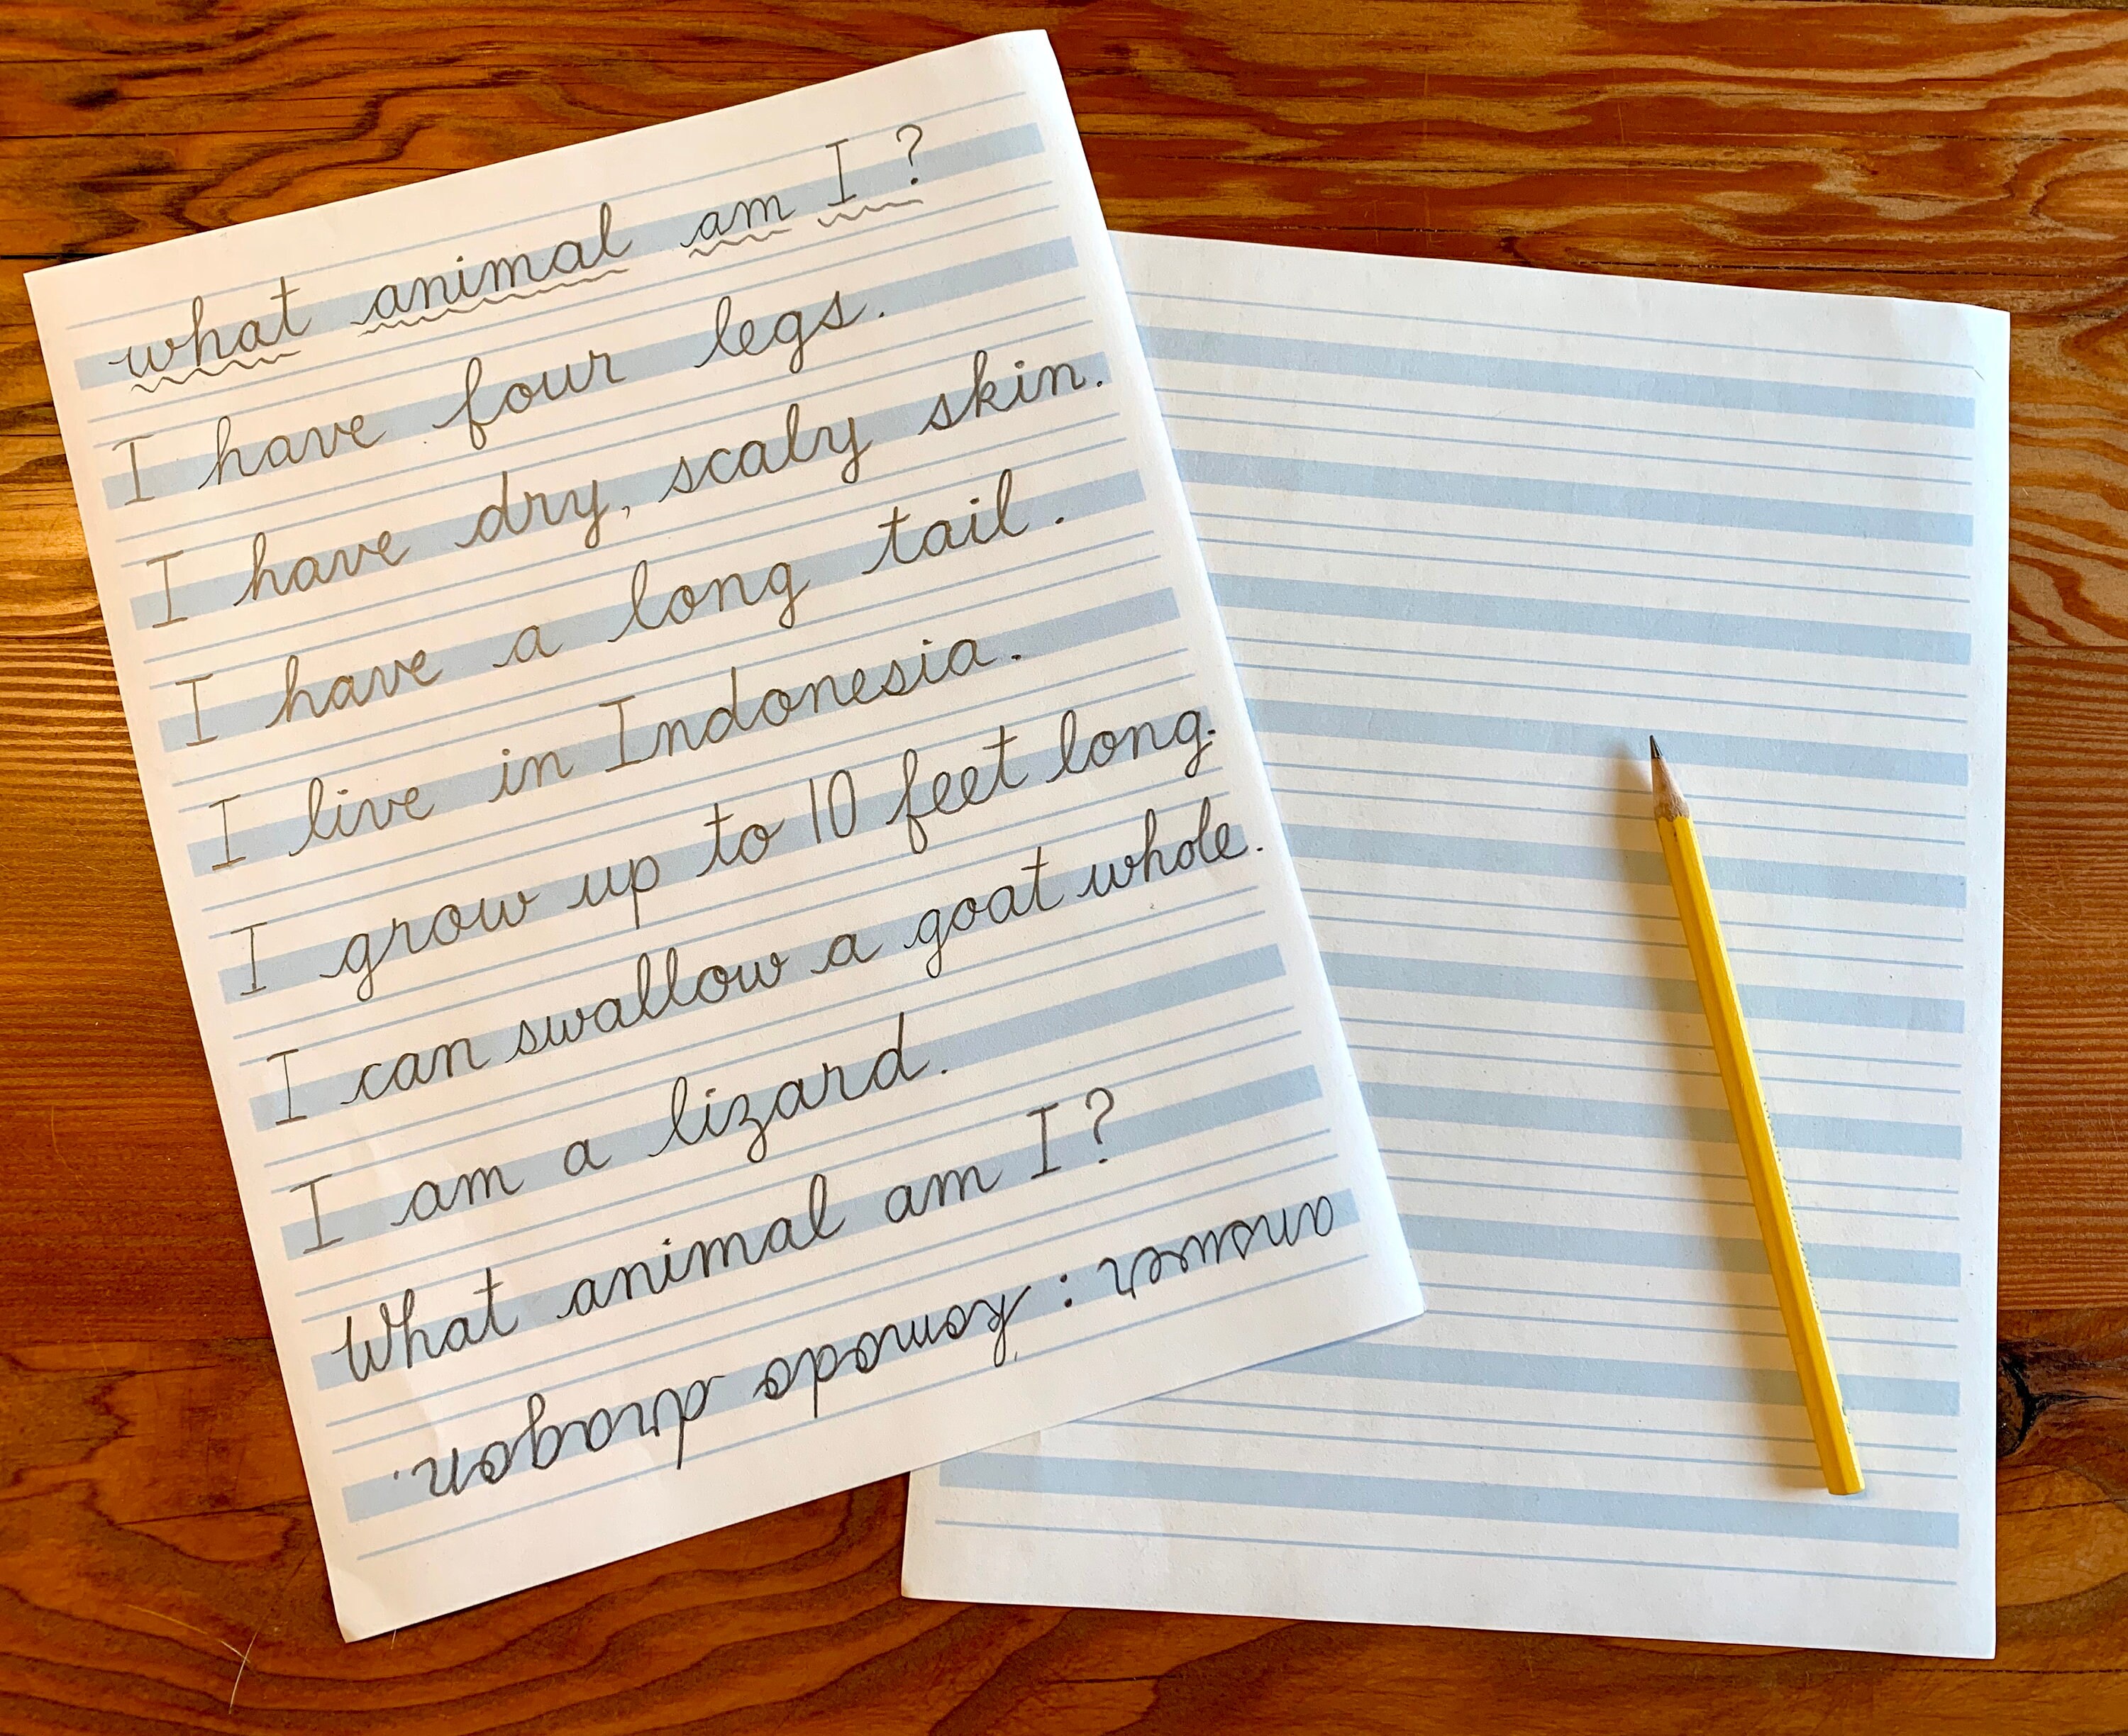 what animal am I ?
I have four legs.
I have dry, scaly skin.
I have a long tail.
I live in Indonesia.
I grow up to 10 feet long.
I can swallow a goat whole.
I am a lizard.
What animal am I?
answer : komodo dragon.